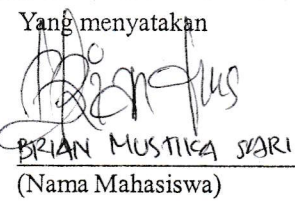 Yang menyatakan
BRIAN MUSTIKA SARI
(Nama Mahasiswa)